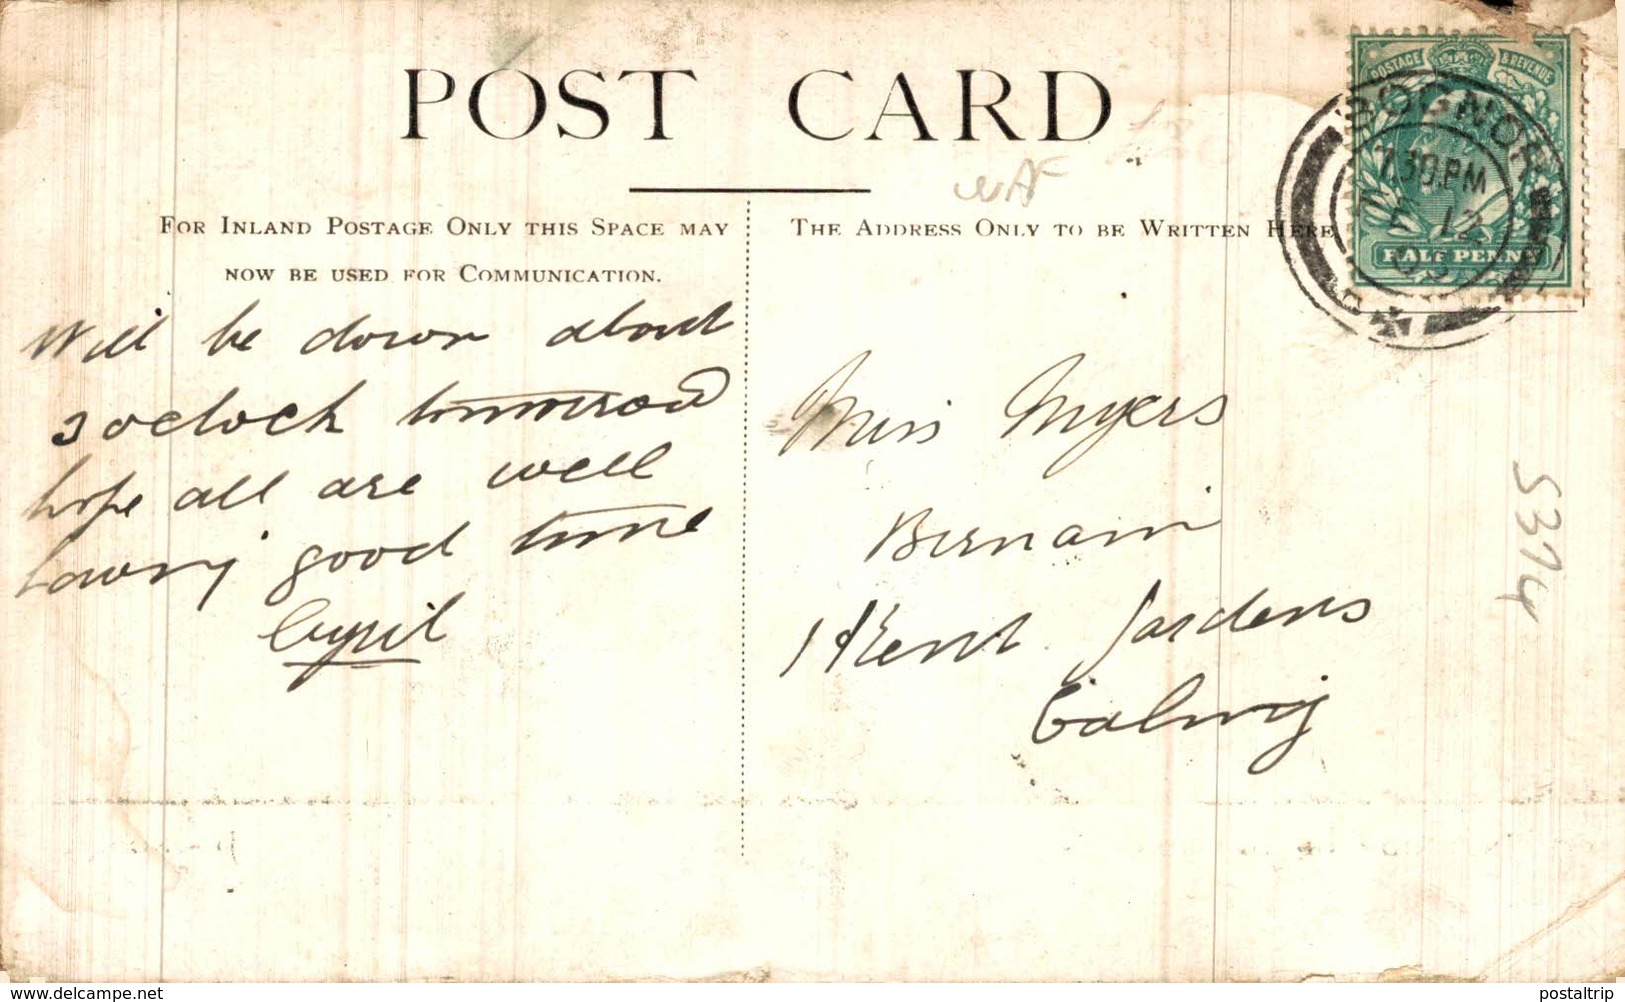 POST CARD
FOR INLAND POSTAGE ONLY THIS SPACE MAY
NOW BE USED FOR COMMUNICATION.
THE ADDRESS ONLY TO BE WRITTEN HERE
POSTAGE & REVENUE
HALF PENNY
BOGNOR
7.30.PM
12
Will be down about
3 oclock tomorrow
hope all are well
having good time
Cyril
Miss Myers
Birnam
1 Kent Gardens
Ealing
S374
www.delcampe.net
postaltrip